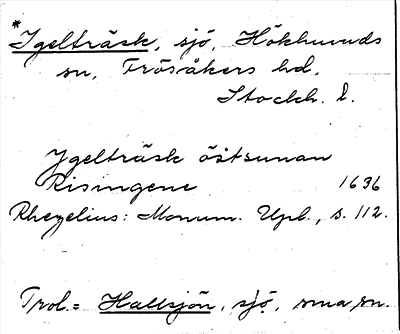 * Igelträsk, sjö, Hökhuvuds
sn, Frösåkers hd.
Stockh. l.
Ygelträsk östsunan
Risingene 1636
Rhezelius: Monum. Upl., s. 112.
Trol. = Hallsjön, sjö, sma sn.